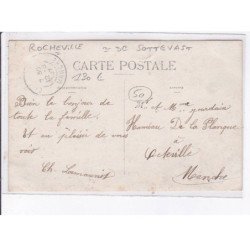 ROCHEVILLE 2 3C SOTTEVAST
CARTE POSTALE
130 L
50
Bien le bonjour de
toute la famille.
Et au plaisir de vous
voir
Ch.
M et Mme Jourdain
Hameau De la
à
Octeville
Manche